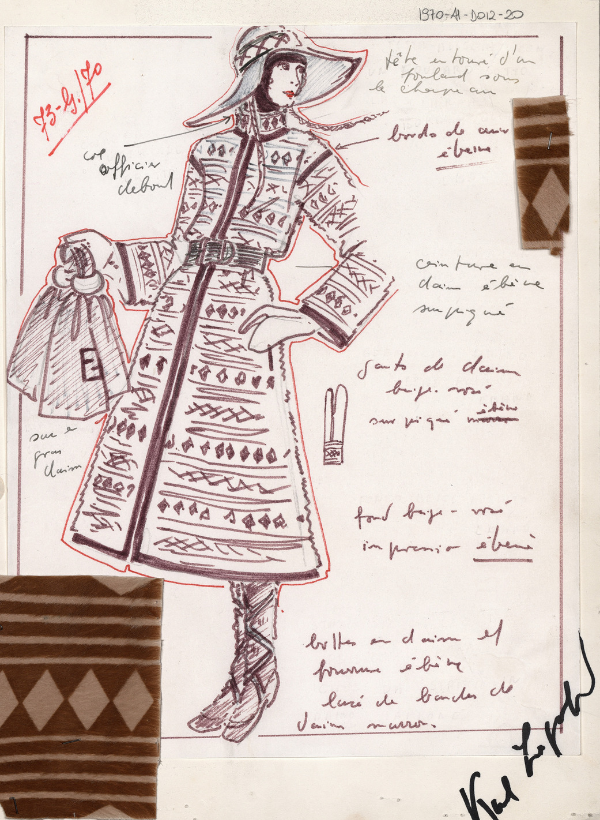 1970-AI-D012-20
73-G/70
tête entouré d'un
foulard sous
le chapeau
bords de cuir
ébène
col
officier
debout
ceinture en
daim ébène
surpiqué
gants de daim
beige-rosé
surpiqué ébène
sac en
gros
daim
fond beige-rosé
impression ébène
bottes en daim et
fourrure ébène
lacé de bandes de
daim marron.
Karl Lagerfeld